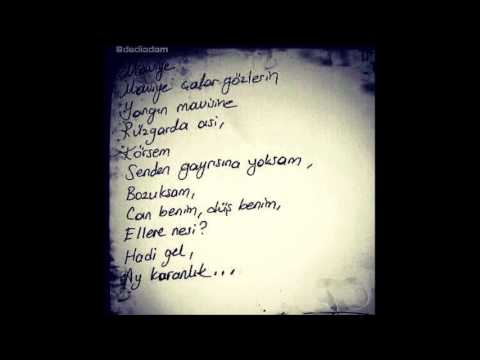 @dediadam
Maviye
Maviye çalar gözlerin
Yangın mavisine
Rüzgarda asi,
Körsem
Senden gayrısına yoksam,
Bozuksam,
Can benim, düş benim,
Ellere nesi?
Hadi gel,
Ay karanlık...